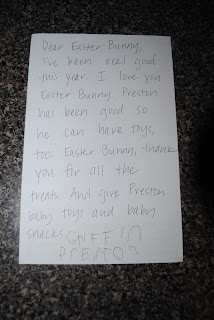 Dear Easter Bunny,
i've been real good
this year. I love you
Easter Bunny. Preston
has been good so
he can have toys,
too. Easter Bunny, thank
you for all the
treats. And give Preston
baby toys and baby
snacks.